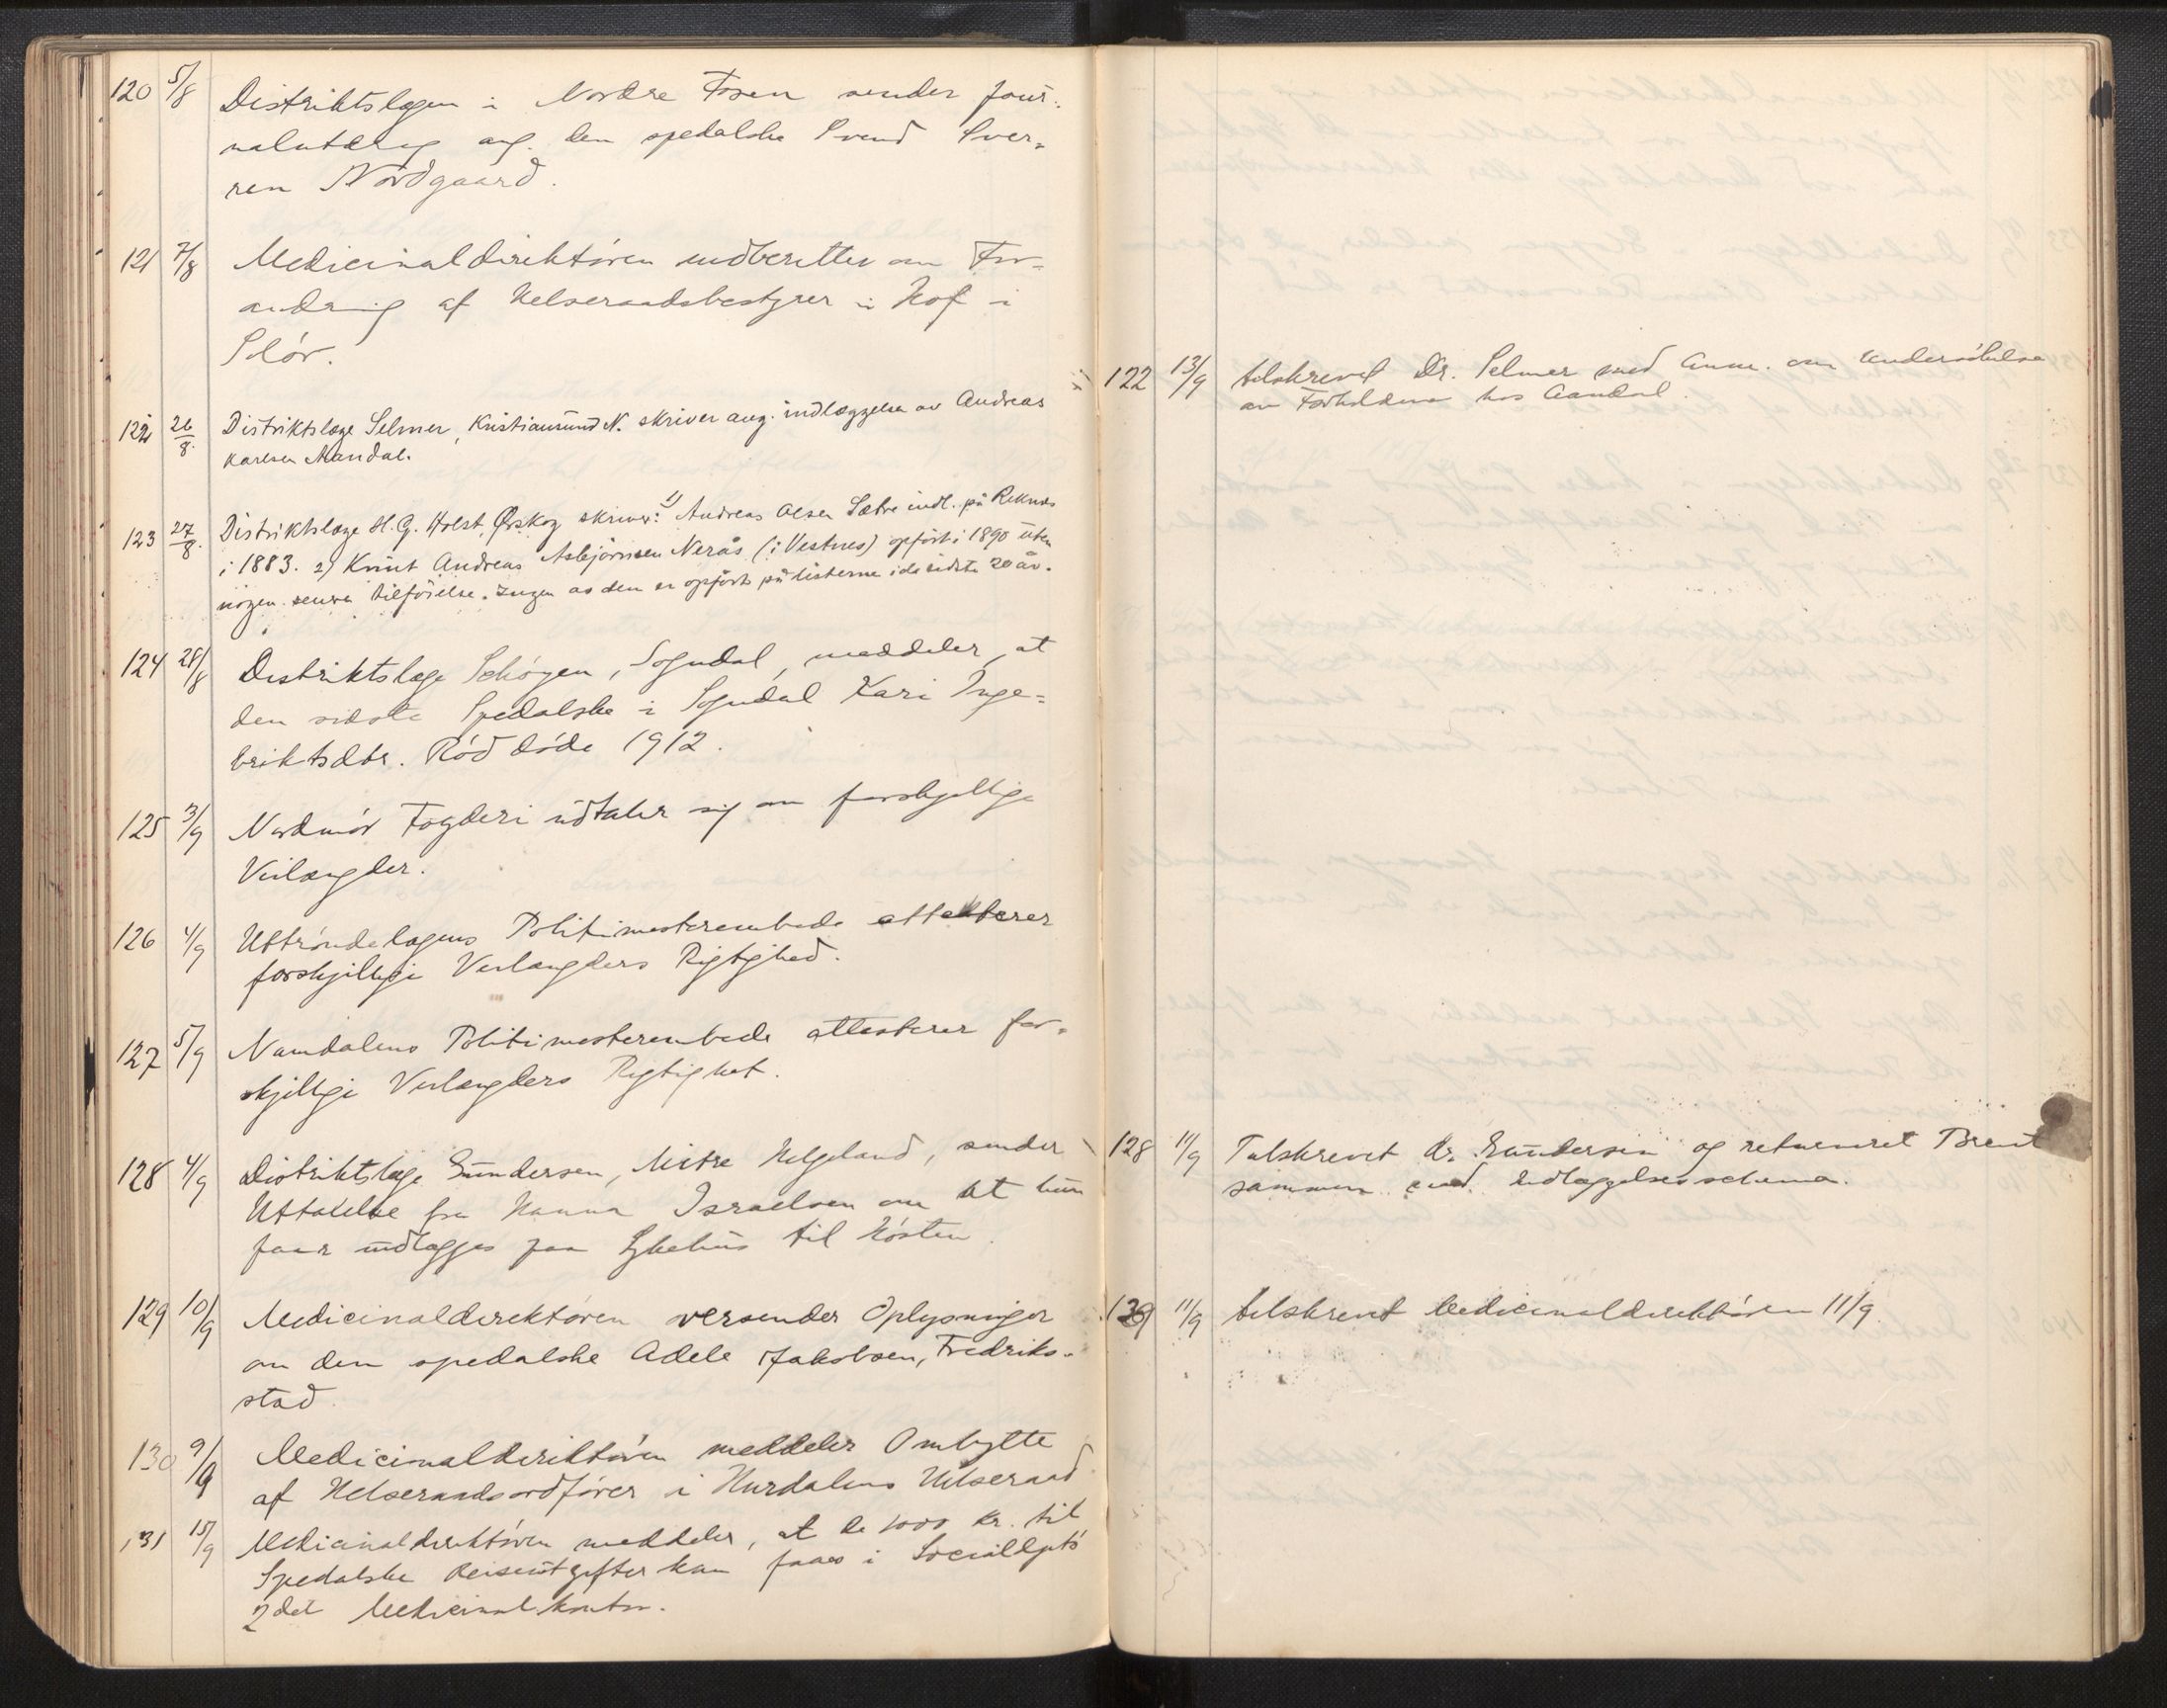 120 5/8 Distriktslægen i Nordre Fosen sender jour-
nalutdrag ang. den spedalske Svend Sver-
ren Nordgaard.
121 7/8 Medicinaldirektøren indberetter om For-
andring af Helseraadsbestyrer i Hof i
Solør.
122 26/8. Distriktslæge Selmer, Kristiansund N. skriver ang. indlæggelse av Andreas
Karlsen Aandal.
123 27/8. Distriktslæge H.G. Holst, Ørskog skriver: 1) Andreas Olsen Sætre indl. på Reknes
i 1883. 2) Knut Andreas Asbjørnsen Nerås (i Vestnes) opført i 1890 uten
nogen senere tilføielse. Ingen av dem er opført på listerne i de sidste 20 år.
124 28/8 Distriktslæge Schøyen, Sogndal, meddeler, at
den sidste Spedalske i Sogndal Kari Inge-
briktsdtr. Rød døde 1912.
125 3/9 Nordmør Fogderi udtaler sig om forskjellige
Veilængder.
126 4/9 Uttrøndelagens Politimesterembede attesterer
forskjellige Veilængders Rigtighed.
127 5/9 Namdalens Politimesterembede attesterer for-
skjellige Veilængders Rigtighet.
128 4/9 Distriktslæge Gundersen, Mitre Helgeland, sender
Uttalelse fra Hanna Israelsen om at hun
faar indlægges paa Sykehus til Høsten.
129 10/9 Medicinaldirektøren versender Oplysninger
om den spedalske Adele Jakobsen, Fredriks-
stad.
130 9/9 Medicinaldirektøren meddeler Ombytte
af Helseraadsordfører i Hurdalens Helseraad
131 15/9 Medicinaldirektøren meddeler, at de 1000 kr. til
Spedalske Reiseutgifter kan faaes i Socialdpts
2det Medicinalkontor.
122 13/9 tilskrevet Dr. Selmer med Anm. om Undersøkelse
av Forholdene hos Aandal.
128 11/9 Tilskrevet dr. Gundersen og returneret Brevet
sammen med Indlæggelsesschema.
129 11/9 tilskrevet Medicinaldirektøren 11/9.